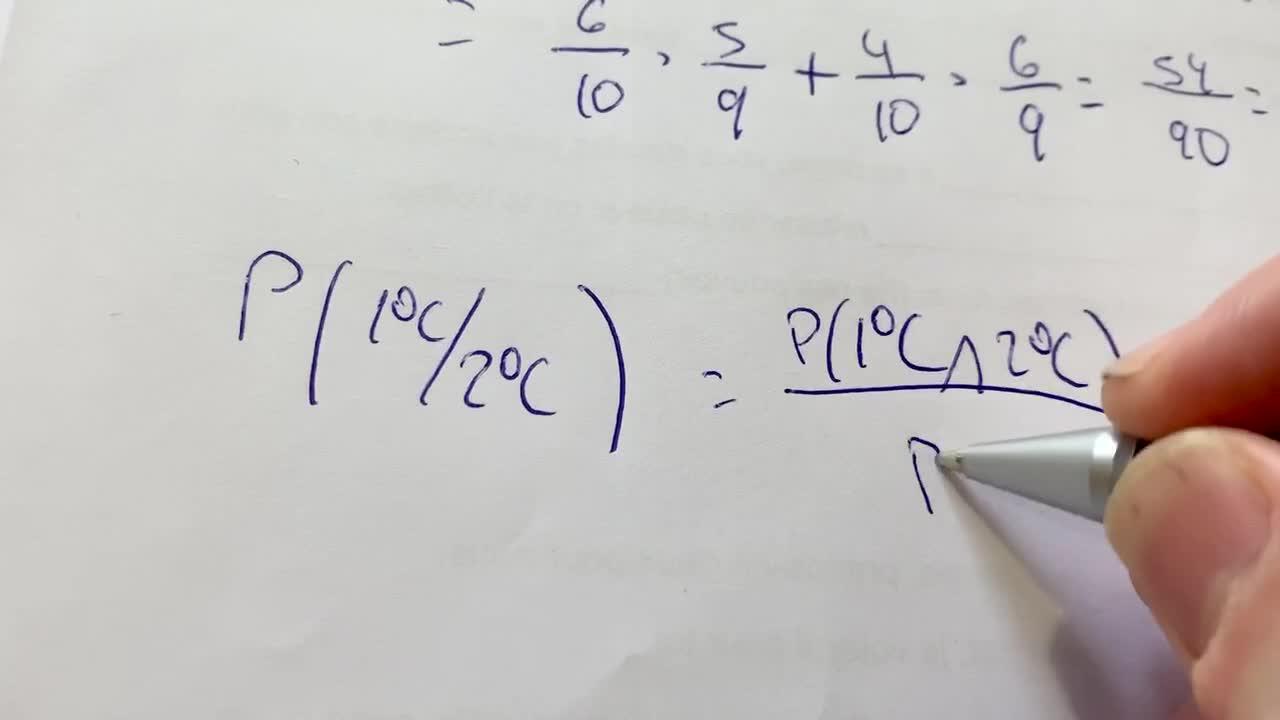 = 6/10 · 5/9 + 4/10 · 6/9 = 54/90 =
P(1ºC/2ºC) = P(1ºC∧2ºC)
P